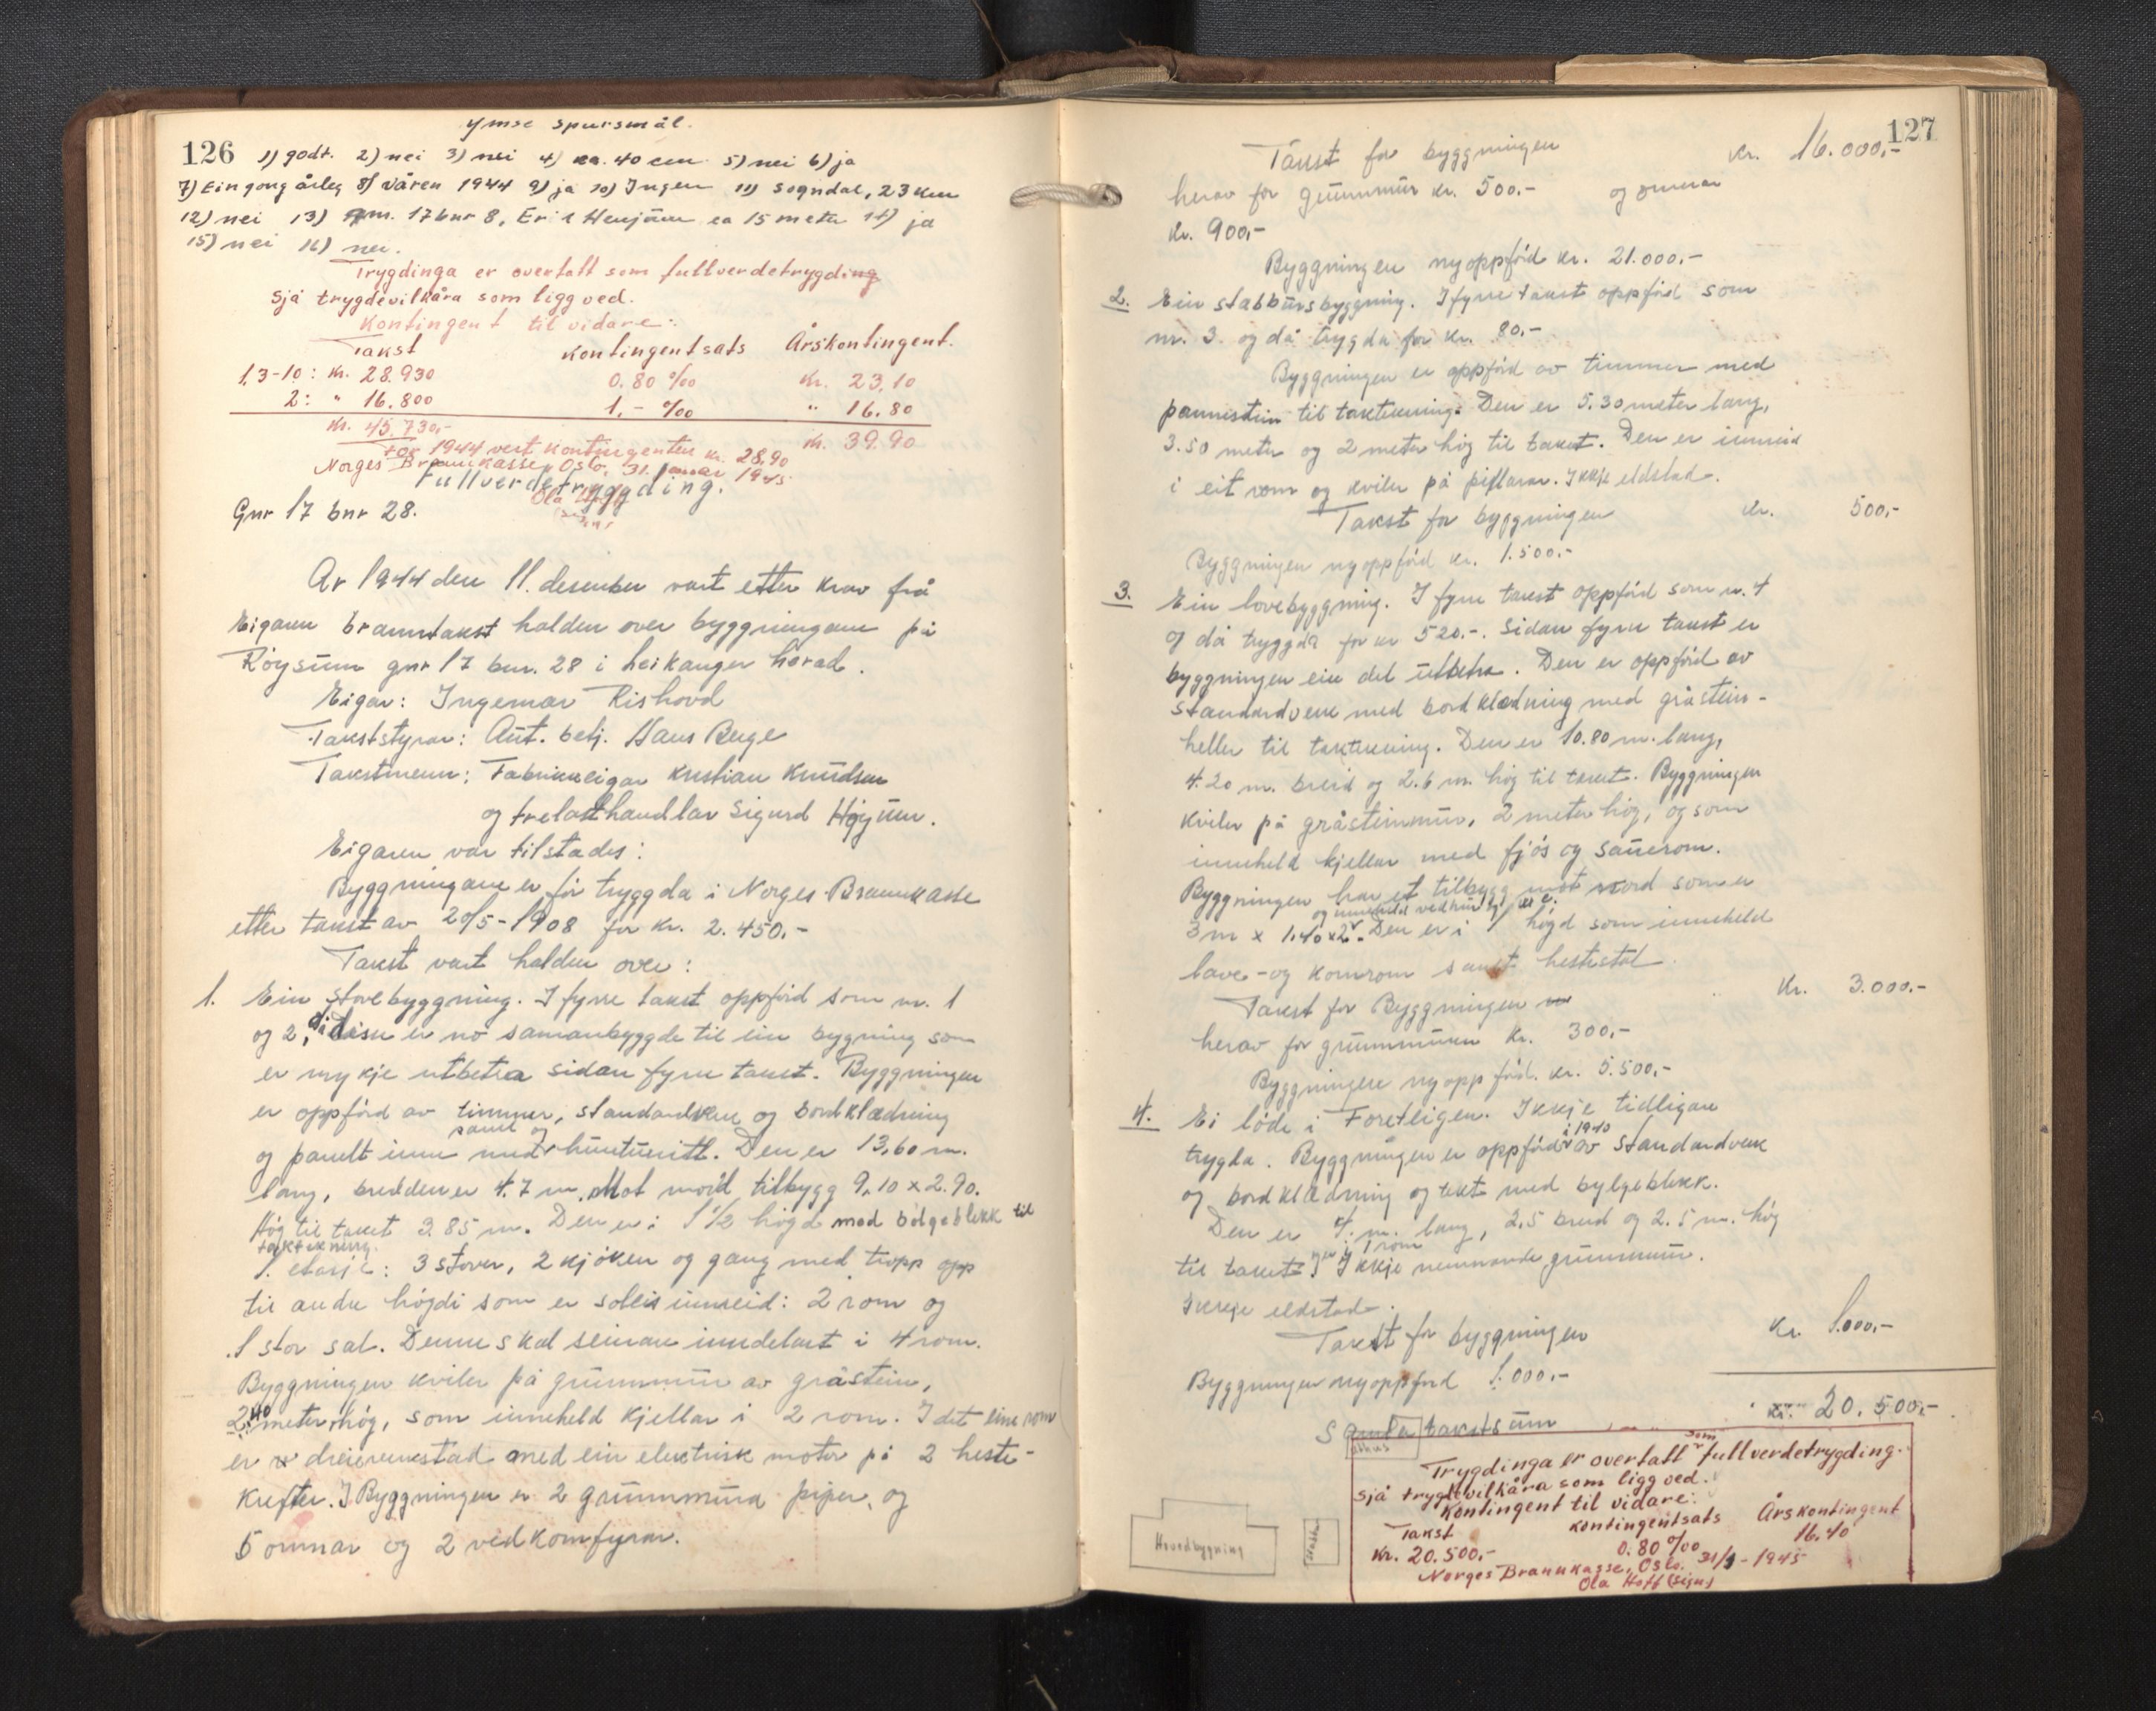 Ymse spursmål.
126 1) godt. 2) nei 3) nei 4) ca. 40 cm. 5) nei 6) ja
7) Ein gong årleg 8) våren 1944 9) ja 10) Ingen 11) Sogndal, 23 km
12) nei 13) gnr. 17 bnr 8, Erik Henjum ca 15 meter 14) ja
15) nei 16) nei.
Trygdinga er overtatt som fullverdetrygding
Sjå trygdevilkåra som ligg ved.
Kontingent til vidare:
Takst Kontingentsats Årskontingent.
1,3-10: Kr. 28.930 0.80 ‰ Kr. 23,10
2: " 16.800 1,- ‰ " 16.80
Kr. 45.730,- Kr. 39.90
For 1944 vert kontingenten kr. 28.90
Norges Brannkasse, Oslo, 31. januar 1945.
Fullverdetryggding.
Ola Hoff
(sign)
Gnr 17 bnr 28.
År 1944 den 11. desember vart etter krav frå
Eigaren branntakst halden over byggningane på
Röysum gnr 17 bnr. 28 i Leikanger herad.
Eigar: Ingemar Rishovd
Takststyrar: Aut. betj. Hans Berge
Takstmenn: Fabrikkeigar Kristian Knudsen
og trelasthandlar Sigurd Högum.
Eigaren var tilstades:
Byggningane er för tryggda i Norges Brannkasse
etter takst av 20/5-1908 for kr. 2.450.-
Takst vart halden over:
1. Ein stovebyggning. I fyrre takst oppförd som nr. 1
og 2, disse er no samanbyggde til ein bygning som
er mykje utbetra sidan fyrre takst. Byggningen
er oppförd av timmer, standardverk og bordklædning
panel og
og panelt inne med huntunitt. Den er 13,60 m.
lang, bredden er 4.7 m. Mot nord tilbygg 9,10 x 2.90.
Hög til taket 3.85 m. Den er i 1 1/2 högd med bölgeblikk til
taktekning.
1. etasje: 3 stover, 2 kjöken og gang med tropp opp
til andre högdi som er soleis innreid: 2 rom og
1 stor sal. Denne skal seinare inndelast i 4 rom.
Byggningen kviler på grunnmur av gråstein,
2.40 meter hög, som inneheld kjellar i 2 rom. I det eine rom
er dreieverkstad med ein elektrisk motor på 2 heste-
krefter. I Byggningen er 2 grunnmura piper, og
5 omnar og 2 vedkomfyrar.
127
Takst for byggningen kr. 16.000,-
herav for grunnmur kr. 500.- og omnar
kr. 900,-
Byggningen nyoppförd kr. 21.000.-
2. Ein stabbursbyggning. I fyrre takst oppförd som
nr. 3. og då trygda for kr. 80.-
Byggningen er oppförd av timmer med
pannestein til taktekning. Den er 5.30 meter lang,
3.50 meter og 2 meter hög til taket. Den er innreid
i eit rom og kviler på pillarar. Ikkje eldstad.
Takst for byggningen kr. 500,-
Byggningen nyoppförd kr. 1.500.-
3. Ein lovebyggning. I fyrre takst oppförd som nr. 4
og då tryggda for kr 520.-. Sidan fyrre takst er
byggningen ein del utbetra. Den er oppförd av
standardverk med bordklædning med gråstein-
heller til taktekning. Den er 10.80 m. lang,
4.20 m. breid og 2.6 m. hög til taket. Byggningen
kviler på gråsteinmur, 2 meter hög, og som
inneheld kjellar med fjös og sauerom.
Byggningen har et tilbygg mot nord som er
og inneheld vedhus
3 m x 1.40 x 2. Den er i 1 högd som inneheld
lave- og kornrom samt hestestal.
Takst for Byggningen Kr. 3.000.-
herav for grunnmuren kr. 300,-
Byggningen nyoppförd. kr. 5.500,-
4. Ei löde i Foretligen. Ikkje tidligare
i 1940
trygda. Byggningen er oppförd av standardverk
og bordklædning og tekt med bylgeblikk.
Den er 4. m. lang, 2,5 breid og 2.5 m. hög
er i 1 rom
til taket. Ikkje nemnande grunnmur.
Ikkje eldstad.
Takst for byggningen kr. 1.000,-
Byggningen nyoppförd 1.000.-
Samla takstsum kr. 20.500.-
Trygdinga er overtatt som fullverdetrygding.
Sjå trygdevilkåra som ligg ved.
Kontingent til vidare:
Takst Kontingentsats Årskontingent
Kr. 20.500.- 0.80 ‰ 16.40
Norges Brannkasse, Oslo. 31/1 - 1945
Ola Hoff (sign)
Hovedbyggning
Stabbur